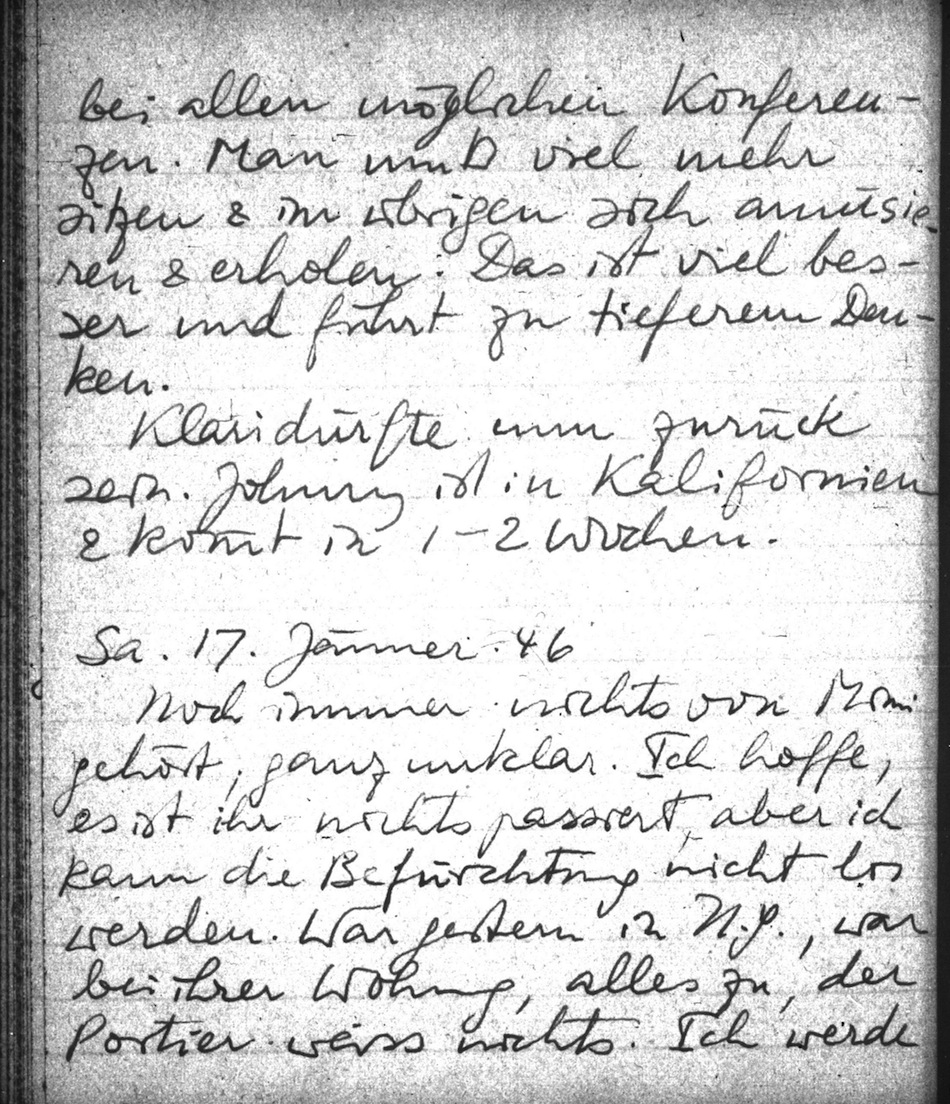 bei allen möglichen Konferen-
zen. Man muß viel mehr
sitzen & im übrigen sich amüsie-
ren & erholen: Das ist viel bes-
ser und führt zu tieferem Den-
ken.
Klari dürfte nun zurück
sein. Johnny ist in Kalifornien
& kom̄t in 1-2 Wochen.
Sa. 17. Jänner. 46
Noch immer nichts von Mimi
gehört, ganz unklar. Ich hoffe,
es ist ihr nichts passiert, aber ich
kann die Befürchtung nicht los
werden. War gestern in N.Y., war
bei ihrer Wohnung, alles zu, der
Portier weiss nichts. Ich werde